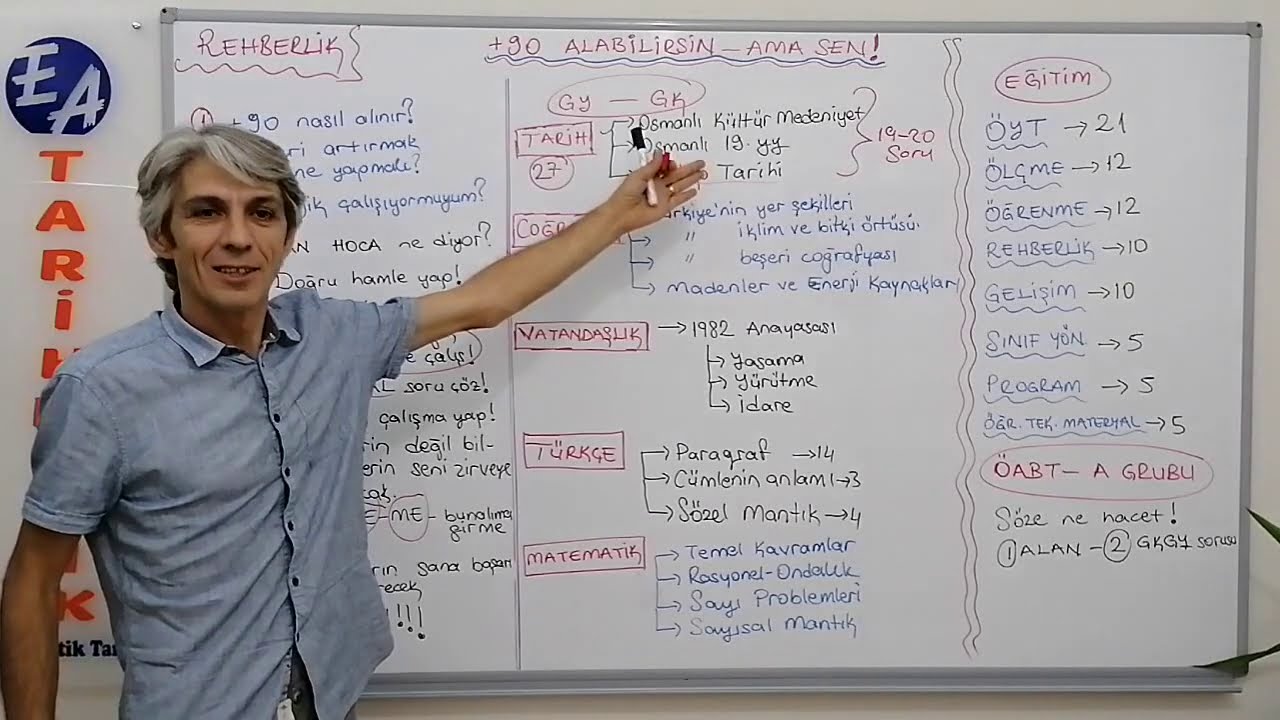 EA
TARİH
tik Tar
REHBERLİK
① +90 nasıl alınır?
artırmak
ne yapmalı?
çalışıyormuyum?
HOCA ne diyor?
Doğru hamle yap!
çalış!
soru çöz!
çalışma yap!
değil bil-
seni zirveye
ME - bunalıma
girme
sana başarı
!!!
+90 ALABİLİRSİN - AMA SEN!
GY - GK
TARİH
27
Osmanlı Kültür Medeniyet
Osmanlı 19. yy
Tarihi
19-20
Soru
yer şekilleri
" iklim ve bitki örtüsü.
" beşeri coğrafyası
Madenler ve Enerji Kaynakları
VATANDAŞLIK → 1982 Anayasası
→ Yasama
→ Yürütme
→ İdare
TÜRKÇE
→ Paragraf → 14
→ Cümlenin anlamı → 3
→ Sözel Mantık → 4
MATEMATİK
→ Temel Kavramlar
→ Rasyonel-Ondalık
→ Sayı Problemleri
→ Sayısal Mantık
EĞİTİM
ÖYT → 21
ÖLÇME → 12
ÖĞRENME → 12
REHBERLİK → 10
GELİŞİM → 10
SINIF YÖN → 5
PROGRAM → 5
ÖĞR. TEK. MATERYAL → 5
ÖABT - A GRUBU
Söze ne hacet!
① ALAN - ② GKGY sorusu